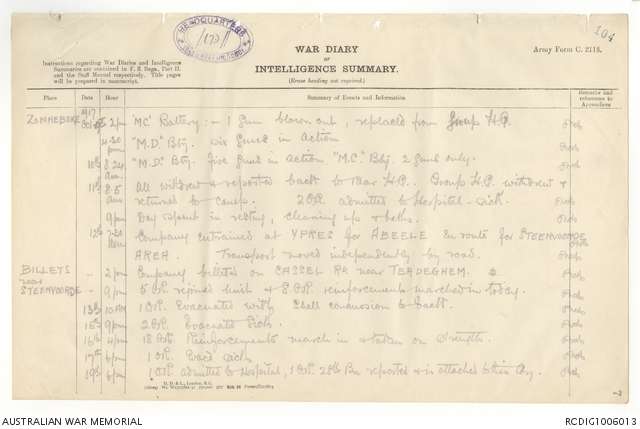 104
HEADQUARTERS
Army Form C. 2118.
WAR DIARY
or
INTELLIGENCE SUMMARY.
(Erase heading not required.)
Instructions regarding War Diaries and Intelligence
Summaries are contained in F. S. Regs., Part II.
and the Staff Manual respectively. Title pages
will be prepared in manuscript.
Place Date Hour Summary of Events and Information Remarks and references to Appendices
ZONNEBEKE 2pm "MC" Battery :- 1 Gun blown out, replaced from Group H.Q.
4.30 pm "M.D." Bty. six guns in Action
10th 8.24 am "M.D." Bty. five guns in action "M.C." Bty 2 guns only.
11th 8.5 am All withdrew & reported back to Rear H.Q. Group H.Q. withdrew &
returned to camp. 2 OR admitted to Hospital - sick.
9pm Day spent in resting, cleaning up & baths.
12th 7.30 am Company entrained at YPRES for ABEELE en route for STEENVOORDE
AREA. Transport moved independently by road.
BILLETS - 2pm Company billeted on CASSEL Rd near TERDEGHEM.
near STEENVOORDE - 9pm 5 OR rejoined unit & 8 OR reinforcements marched in today.
13th 10 AM 1 OR. Evacuated with shell concussion to back.
15th 9pm 2 OR. Evacuated Sick.
16th 4pm 18 ORs Reinforcements march in & taken on Strength.
17th 6pm 1 OR. Evac'd sick
19th 6pm 1 OR. admitted to Hospital, 1 OR. 28th Bn reported & is attached to this Coy.
AUSTRALIAN WAR MEMORIAL
RCDIG1006013